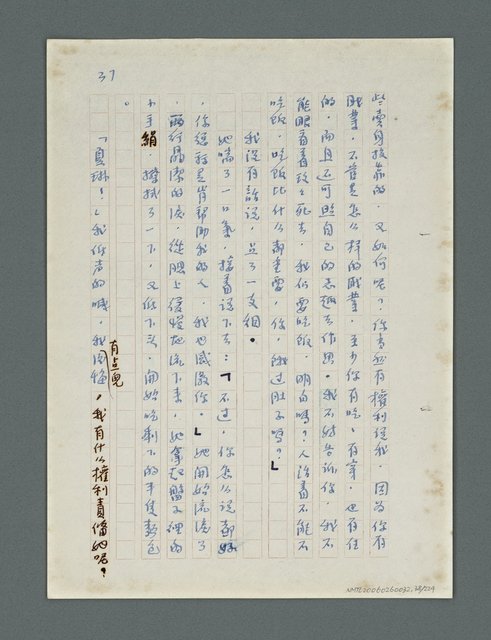 37
些賣身投靠的，又如何呢？你當然有權利怪我，因為你有
職業，不管是怎么样的職業，至少你有吃，有穿，也有住
的，而且还可照自己的志趣去作畏。我不妨告訴你，我不
能眼看着孩子死去，我們要吃飯，明白嗎？人活着不能不
吃飯，吃飯比什么都重要，你，餓过肚子嗎？」
我沒有話說，点了一支烟。
她喘了一口氣，接着說下去：「不过，你怎么說都好
，你總算是肯幫助我的人，我也感激你。」她開始流淚了
，兩行晶瑩的淚，從臉上緩慢地流下来，她拿起盤子裡的
小手絹，擦拭了一下，又低下头，開始吃剩下的半隻麵包
。
「夏琳！」我低声的喊，我有点兒後悔，我有什么權利責備她呢？
NMTL20060260032,38/224